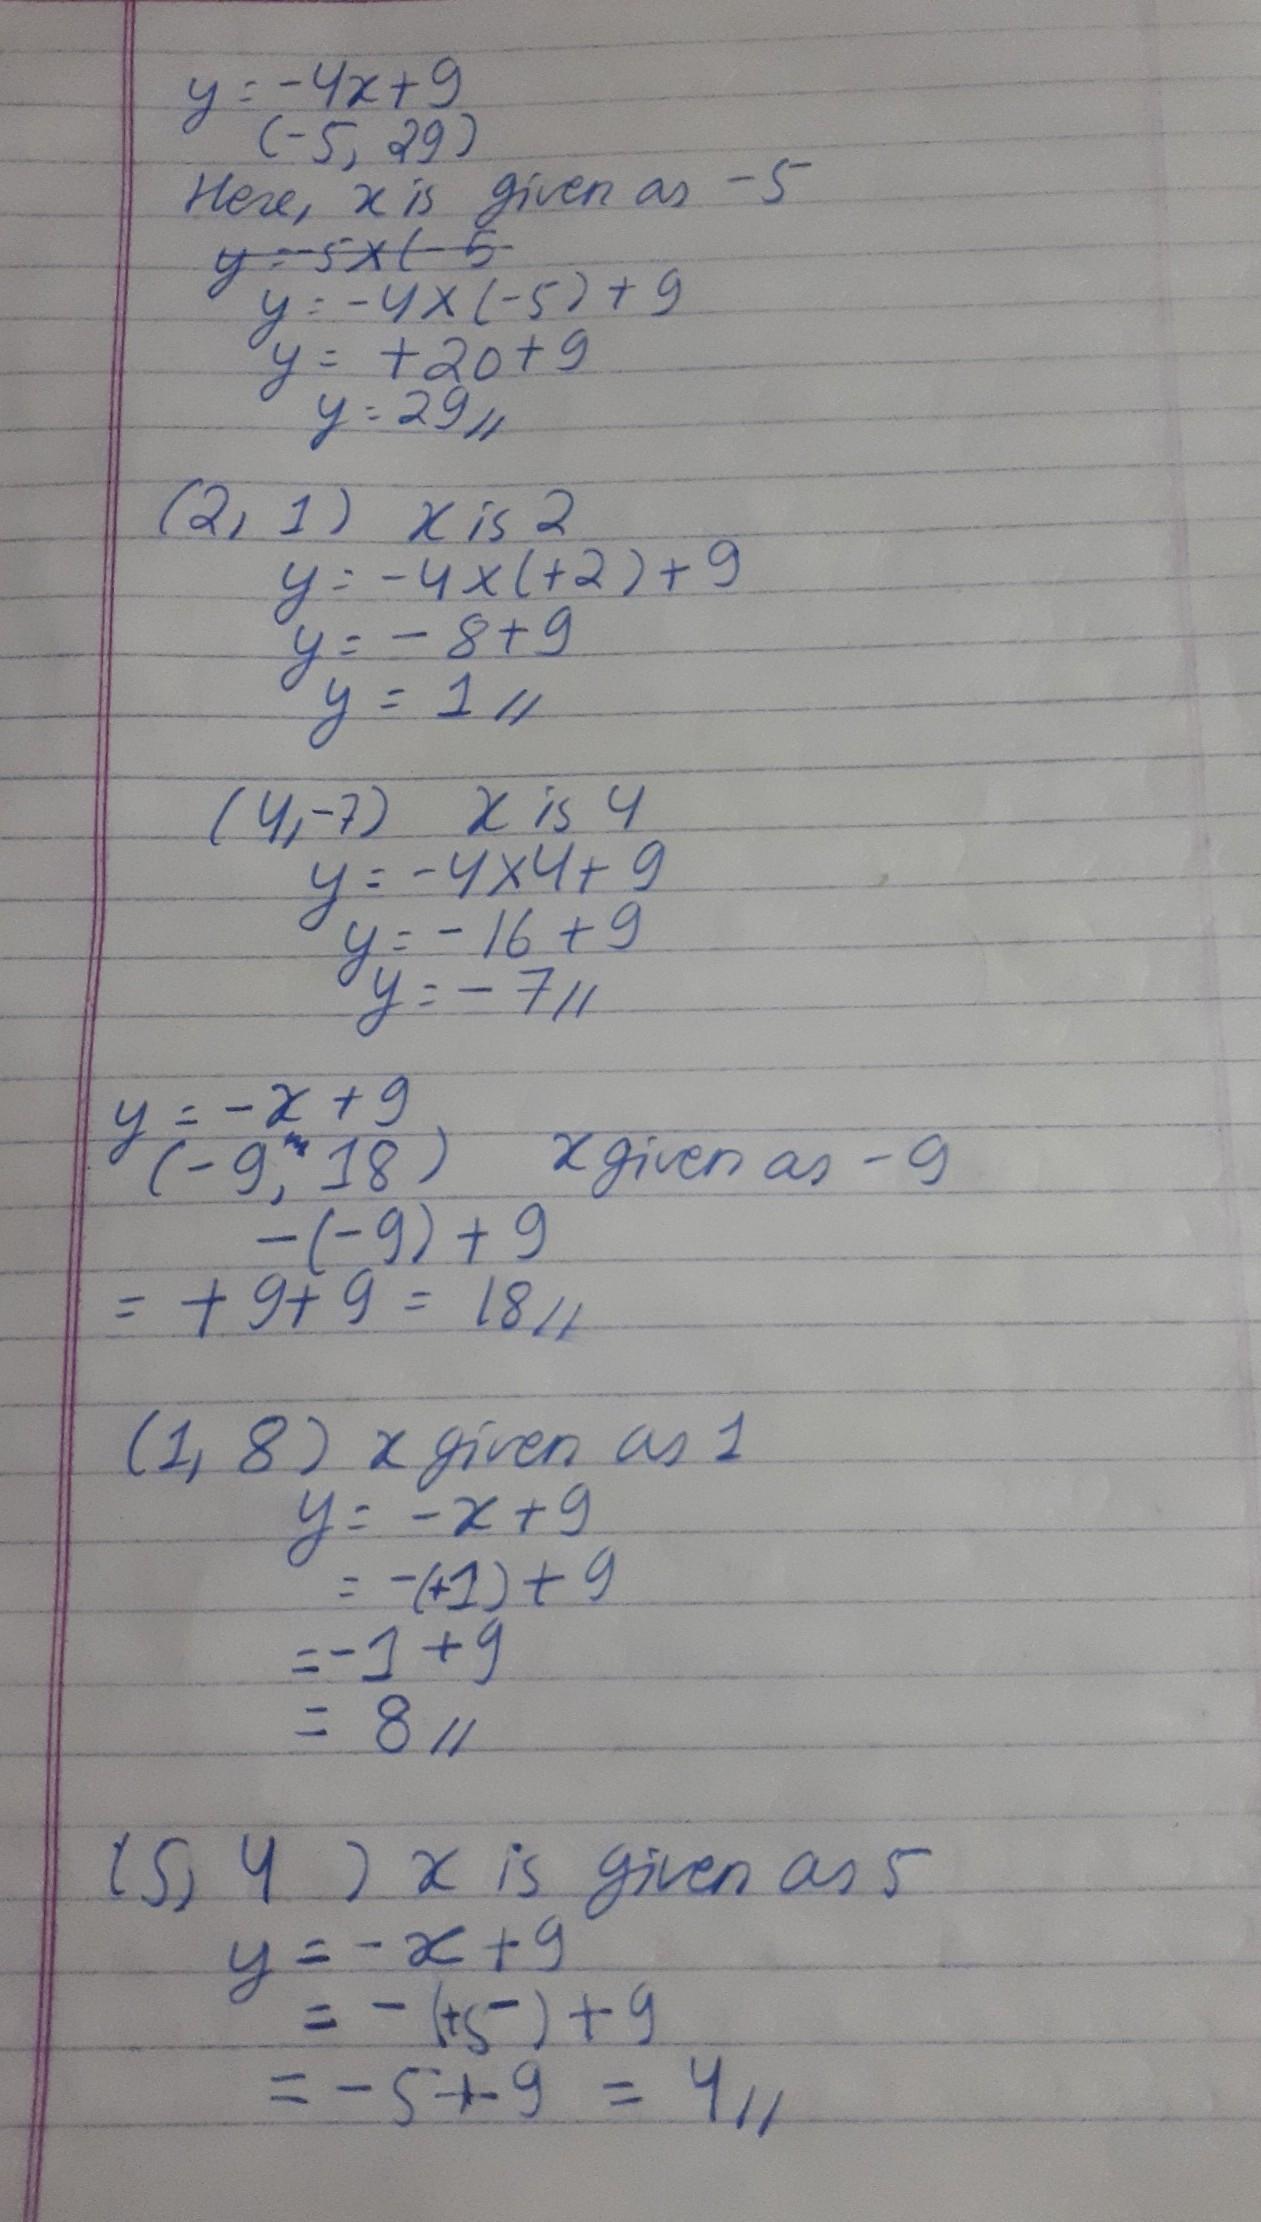 y = -4x + 9
(-5, 29)
Here, x is given as -5
y = -5 x (-5
y = -4 x (-5) + 9
y = +20 + 9
y = 29 //
(2, 1) x is 2
y = -4 x (+2) + 9
y = - 8 + 9
y = 1 //
(4, -7) x is 4
y = -4 x 4 + 9
y = - 16 + 9
y = - 7 //
y = -x + 9
(-9, 18) x given as -9
-(-9) + 9
= + 9 + 9 = 18 //
(1, 8) x given as 1
y = -x + 9
= -(+1) + 9
= -1 + 9
= 8 //
(5, 4 ) x is given as 5
y = -x + 9
= -(+5) + 9
= -5 + 9 = 4 //